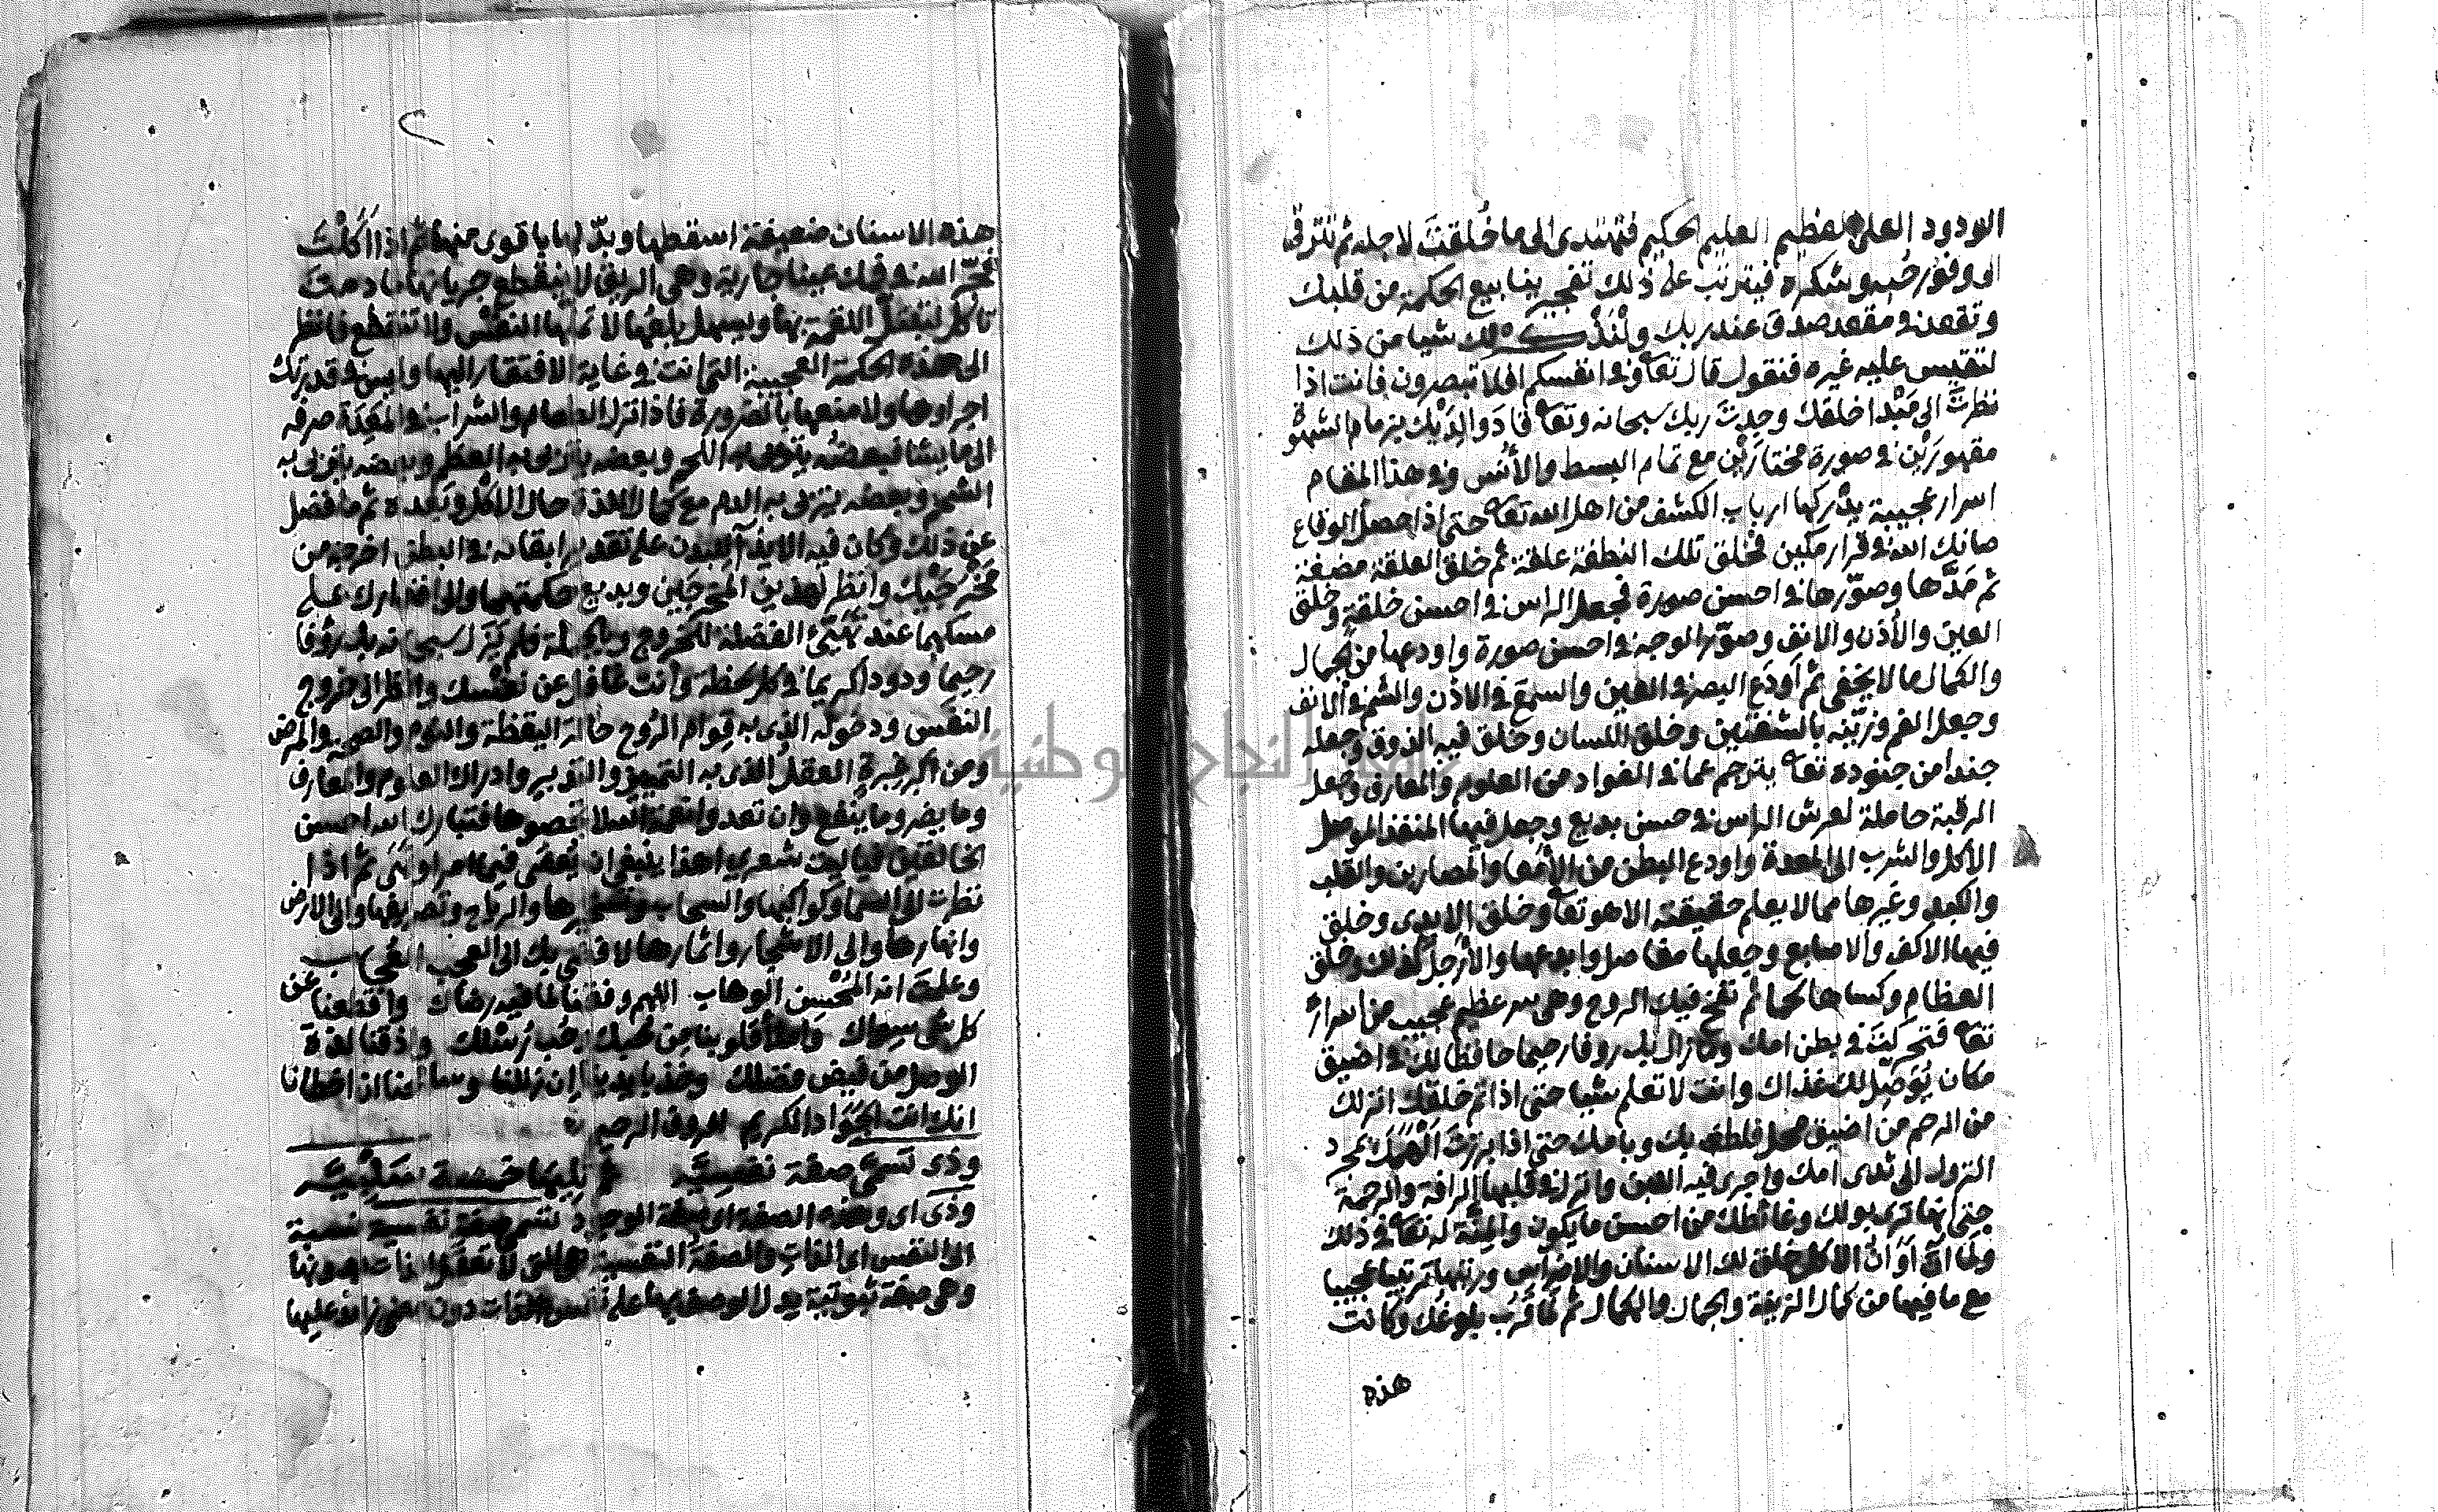 الودود العلي العظيم العليم الحكيم فتهتدى الى ما خُلقتَ لاجله ثم تترقى
الى وفور حُبه وشكره فيترتب على ذلك تفجير ينابيع الحكمة من قلبك
وتقعد فى مقعد صدق عند ربك ولنذكر لك شيا من ذلك
لتقيس عليه غيره فنقول قال تعا وفى انفسكم افلا تبصرون فانت اذا
نظرتَ الى مَبْدا خلقك وجدتَ ربك سبحانه وتعا قادَ والِدَيْك بزمام الشهوة
مقهورَيْن فى صورة مختارَيْن مع تمام البسط والأنس وفى هذا المقام
اسرار عجيبة يدركها ارباب الكشف من اهل الله تعا حتى اذا حصل الوقاع
صانك الله فى قرار مكين فخلق تلك النطفة علقة ثم خلق العلقة مضغة
ثم مَدَّها وصوّرها فى احسن صورة فجعل الراس فى احسن خلقة وخلق
العين والأذن والانف وصوّر الوجه فى احسن صورة واودعها من الجمال
والكمال ما لا يخفى ثم أودَع البصر فى العين والسمع فى الاذن والشم فى الانف
وجعل الفم وزيّنه بالشفتين وخلق اللسان وخلق فيه الذوق وجعله
جندا من جنوده تعا يترجم عما فى الفواد من العلوم والمعارف وجعل
الرقبة حاملة لعرش الراس فى حسن بديع وجعل فيها المنفذ الموصل
الاكل والشرب الى المعدة واودع البطن من الأمعا والمصارين والقلب
والكبد وغيرها مما لا يعلم حقيقته الا هو تعا وخلق الايدى وخلق
فيها الاكف والاصابع وجعلها مفاصل وابدعها والأرجل كذلك وخلق
العظام وكساها لحما ثم نفخ فيك الروح وهى سر عظيم عجيب من اسراره
تعا فتحركتَ فى بطن امك وما زال بك روفا رحيما حافظا لك فى اضيق
مكان يُوَصِّل لك غذاك وانت لا تعلم شيا حتى اذا تم خلقك انزلك
من الرحم من اضيق محل فلطف بك وبامك حتى اذا برزتَ ألهمك بمجرد
النزول الى ثدى امك واجرى فيه اللبن وانزل فى قلبها الرافة والرحمة
حتى انها ترى بولك وغائطك من احسن ما يكون والمِنَّة له تعا فى ذلك
ولما آن أوَان الاكل خلق لك الاسنان والاضراس ورتبها ترتيبا عجيبا
مع ما فيها من كمال الزينة والجمال والكمال ثم لما قَرُب بلوغك وكانت
هذه
هذه الاسنان ضعيفة اسقطها وبدّلها باقوى منها ثم اذا اكلْتَ
فجّر الله فى فيك عينا جارية وهى الريق لا ينقطع جريانها ما دمتَ
تاكل لتبتلّ اللقمة بها ويسهل بلعُها لا تملّها النفس ولا تنقطع فانظر
الى هذه الحكمة العجيبة التى انت فى غاية الافتقار اليها وليس فى قدرتك
اجراوها ولا منعها بالضرورة فاذا نزل الطعام والشراب فى المَعِدَة صرفه
الى ما يشا فبعضُه يتربى به اللحم وبعضه يتربى به العظم وبعضه يتربى به
الشحم وبعضه يتربى به الدم مع كمال اللذة حال الاكل وبَعده ثم ما فضل
عن ذلك وكان فيه الايذآ للبدن على تقدير ابقائه فى البطن اخرجه من
مَخْرَجَيْك وانظر لهذين المخرجَين وبديع حكمتهما ولا اقدارك على
مسكهما عند تَهَيّئ الفضلة للخروج وبالجملة فلم يَزَل سبحانه بك روفا
رحيما ودودا كريما فى كل لحظة وانت غافل عن نفسك وانظر الى خروج
النفَس ودخوله الذى به قِوام الرُوح حالة اليقظة والنوم والصحة والمرض
ومن اكبر عبرة العقل الذى به التمييز والتدبير وادراك العلوم والمعارف
وما يضر وما ينفع وان تعدوا نعمة الله لا تحصوها فتبارك الله احسن
الخالقين فيا ليت شعرى اهذا ينبغى ان يُعصَى فيما امر او نَهَى ثم اذا
نظرت الى السما وكواكبها والسحاب وتسخيرها والرياح وتصريفها والى الارض
وانهارها والى الاشجار واثمارها لافضى بك الى العجب العُجاب
وعلمتَ انه المُحْسِن الوهاب اللهم وفقنا لما فيه رضاك واقطعنا عن
كل شى سواك واملأ قلوبنا من حُبك وحُب رُسُلك واذقنا لذة
الوصل من فيض فضلك وخذ بايدينا إن زللنا وسامحنا ان اخطانا
انك انت الجَوَاد الكريم الروف الرحيم
وذى تسَمّى صفة نفسِيَّه ثم يَلِيهَا خمسة سَلْبِيَّه
وذى اى وهذه الصفة اى صفة الوجود تسمى صفة نفسية نسبة
الى النفس اى الذات والصفة النفسية هى التى لا تعقل الذات بدونها
وهى صفة ثبوتية يدل الوصف بها على نفس الذات دون معنى زائد عليها